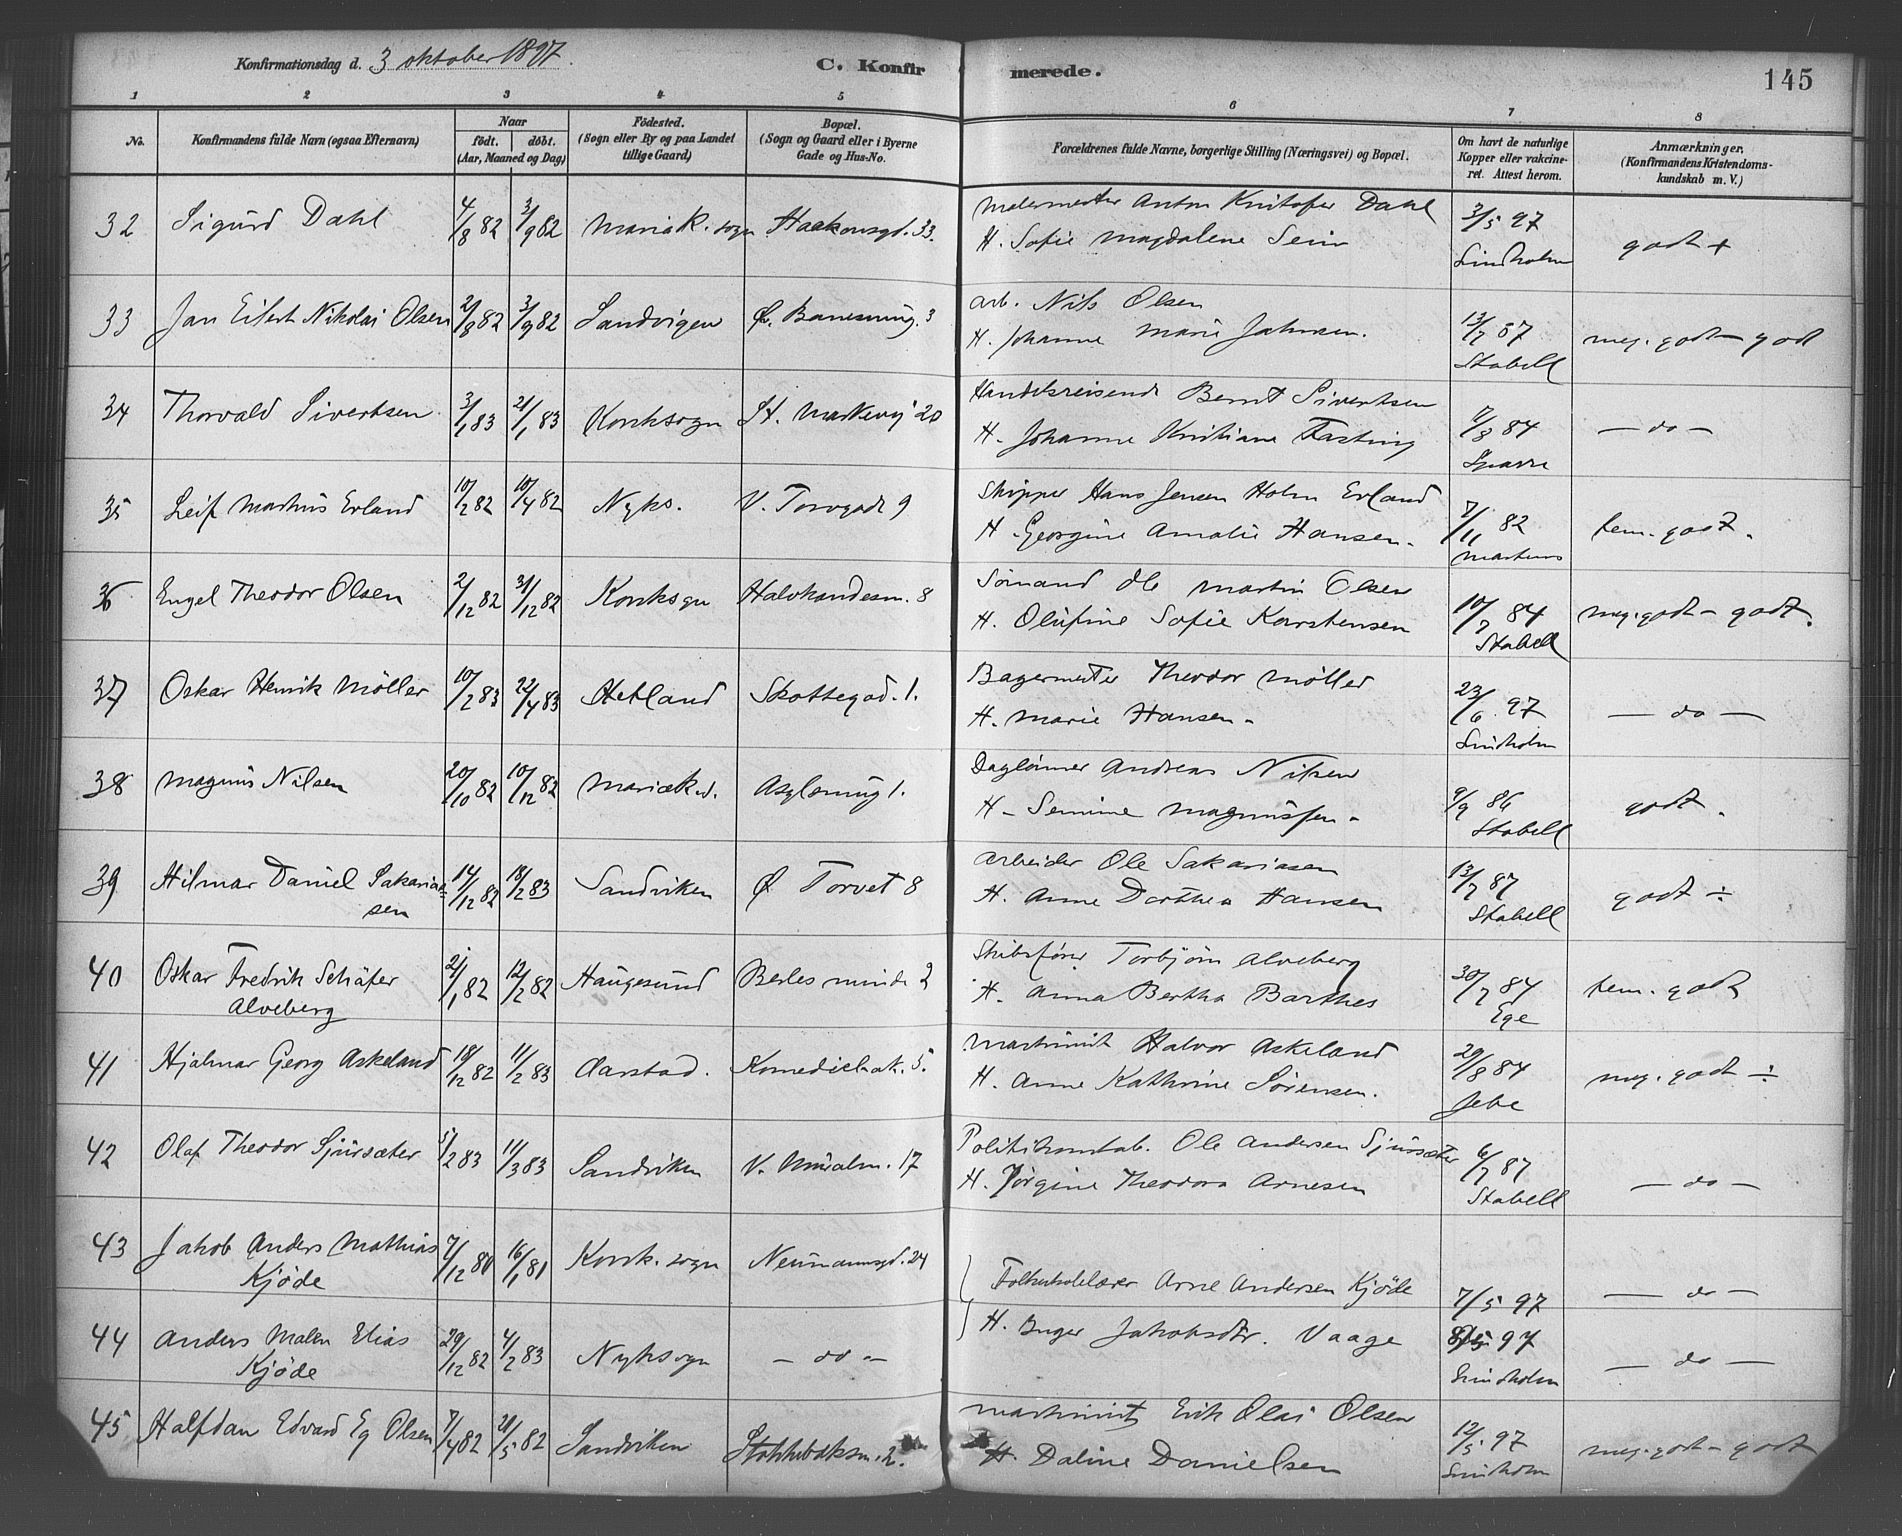 Konfirmationsdag d. 3 oktober 1897. C. Konfirmerede. 145
1 2 3 4 5 6 7 8
No. Konfirmandens fulde Navn (ogsaa Efternavn) Naar født. døbt. (Aar, Maaned og Dag) Fødested. (Sogn eller By og paa Landet tillige Gaard) Bopæl. (Sogn og Gaard eller i Byerne Gade og Hus-No. Forældrenes fulde Navne, borgerlige Stilling (Næringsvei) og Bopæl. Om havt de naturlige Kopper eller vakcineret. Attest herom. Anmærkninger. (Konfirmandens Kristendomskundskab m. V.)
32 Sigurd Dahl 4/8 82 3/9 82 Mariak. sogn Haakonsgd. 33. Malermester Anton Kristofer Dahl 3/5 97 godt +
H. Sofie Magdalene Seim Lindholm
33 Jan Eilert Nikolai Olsen 21/8 82 3/9 82 Sandvigen Ø. Banesmug. 3 Arb. Nils Olsen 13/7 87 meg. godt – godt
H. Johanne Marie Jahnsen. Stabell
34 Thorvald Sivertsen 3/1 83 21/1 83 Korsksogn St. Markevej 20 Handelsreisende Bernt Sivertsen 7/8 84 — do —
H. Johanne Kristiane Fasting
35 Leif Martius Erland 10/2 82 10/4 82 Nyks. V. Torvgade 9 Skipper Hans Jensen Holm Erland 7/11 82 tem. godt.
H. Georgine Amalie Hansen. Martens
36 Engel Theodor Olsen 2/12 82 31/12 82 Korsksgn Halvkandesm. 8 Sømand Ole Martin Olsen 10/7 84 meg. godt – godt.
H. Olufine Sofie Karstensen Stabell
37 Oskar Henrik Møller 10/2 83 22/4 83 Hetland Skottegad. 1. Bagermester Theodor Møller 23/6 97 — do —
H. Marie Hansen. Lindholm
38 Magnus Nilsen 20/10 82 10/12 82 Mariæk.s. Asylsmug 1. Daglønner Andreas Nilsen 9/9 86 godt.
H. Semine Magnussen. Stabell
39 Hilmar Daniel Sakaria= 14/12 82 18/2 83 Sandviken Ø. Torvet 8 Arbeider Ole Sakariasen 13/7 87 godt ÷
sen H. Anne Dorthea Hansen Stabell
40 Oskar Fredrik Schäfer 21/1 82 12/2 82 Haugesund Berles minde 2 Skibsfører Torbjørn Alveberg 30/7 84 tem. godt
Alveberg H. Anna Bertha Barthes Ege
41 Hjalmar Georg Askeland 18/12 82 11/2 83 Aarstad. Komediebak. 5. Maskinist Halvor Askeland 29/8 84 meg. godt ÷
H. Anne Kathrine Sørensen. Jebe
42 Olaf Theodor Sjursæter 5/2 83 11/3 83 Sandviken V. Muralm. 17 Politikonstab. Ole Andersen Sjursæter 6/7 87 — do —
H. Jørgine Theodora Arnesen Stabell
43 Jakob Anders Mathias 7/12 80 16/1 81 Korsk. sogn Neumannsgd. 24 Folkeskolelærer Arne Andersen Kjøde 7/5 97 — do —
Kjøde
44 Anders Malen Elias 29/12 82 4/2 83 Nyksogn — do — H. Inger Jakobsdtr. Vaage 97 — do —
Kjøde Lindholm
45 Halfdan Edvard Eg Olsen 7/4 82 21/5 82 Sandviken Stokkebaksm. 2. Maskinist Erik Olai Olsen 12/5 97 meg. godt – godt
H. Daline Danielsen Lindholm